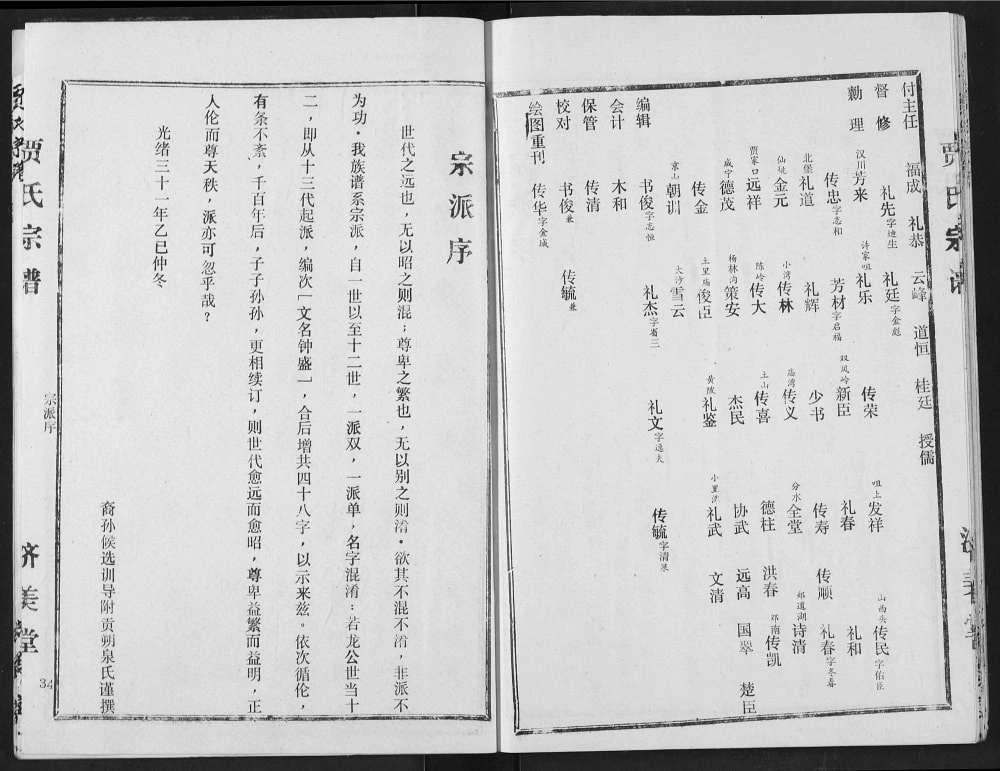 贾氏宗谱
付主任 福成 礼恭 云峰 道恒 桂廷 授儒
督修 礼先字迪生 礼廷字金彪 传荣 咀上发祥 山西头传民字佑臣
勷理 汉川芳来 许家咀礼乐 双凤岭新臣 礼春 礼和
传忠字志和 芳材字启福 少书 传寿 传顺 礼春字冬春
北堡礼道 礼辉 庙湾传义 分水全堂 郑道湖诗清
金元 小湾传林 土山传喜 德柱 洪春 邓南传凯
贾家口远祥 陈岭传大 杰民 协武 远高 国翠 楚臣
咸宁德茂 杨林沟策安 黄陂礼鉴 礼武 文清
传金 俊臣
京山朝训 大沙雪云
编辑 书俊字志恒 礼杰字省三 礼文字逸夫 传毓字清泉
会计 木和
保管 传清
校对 书俊兼 传毓兼
绘图重刊 传华字金城
宗派序
世代之远也，无以昭之则混；尊卑之繁也，无以别之则淆·欲其不混不淆，非派不
为功·我族谱系宗派，自一世以至十二世，一派双，一派单，名字混淆：若龙公世当十
二，即从十三代起派，编次［文名钟盛］，合后增共四十八字，以示来兹。依次循伦，
有条不紊，千百年后，子子孙孙，更相续订，则世代愈远而愈昭，尊卑益繁而益明，正
人伦而尊天秩，派亦可忽乎哉？
光绪三十一年乙巳仲冬
裔孙候选训导附贡朔泉氏谨撰
贾氏宗谱
宗派序
济美堂
34